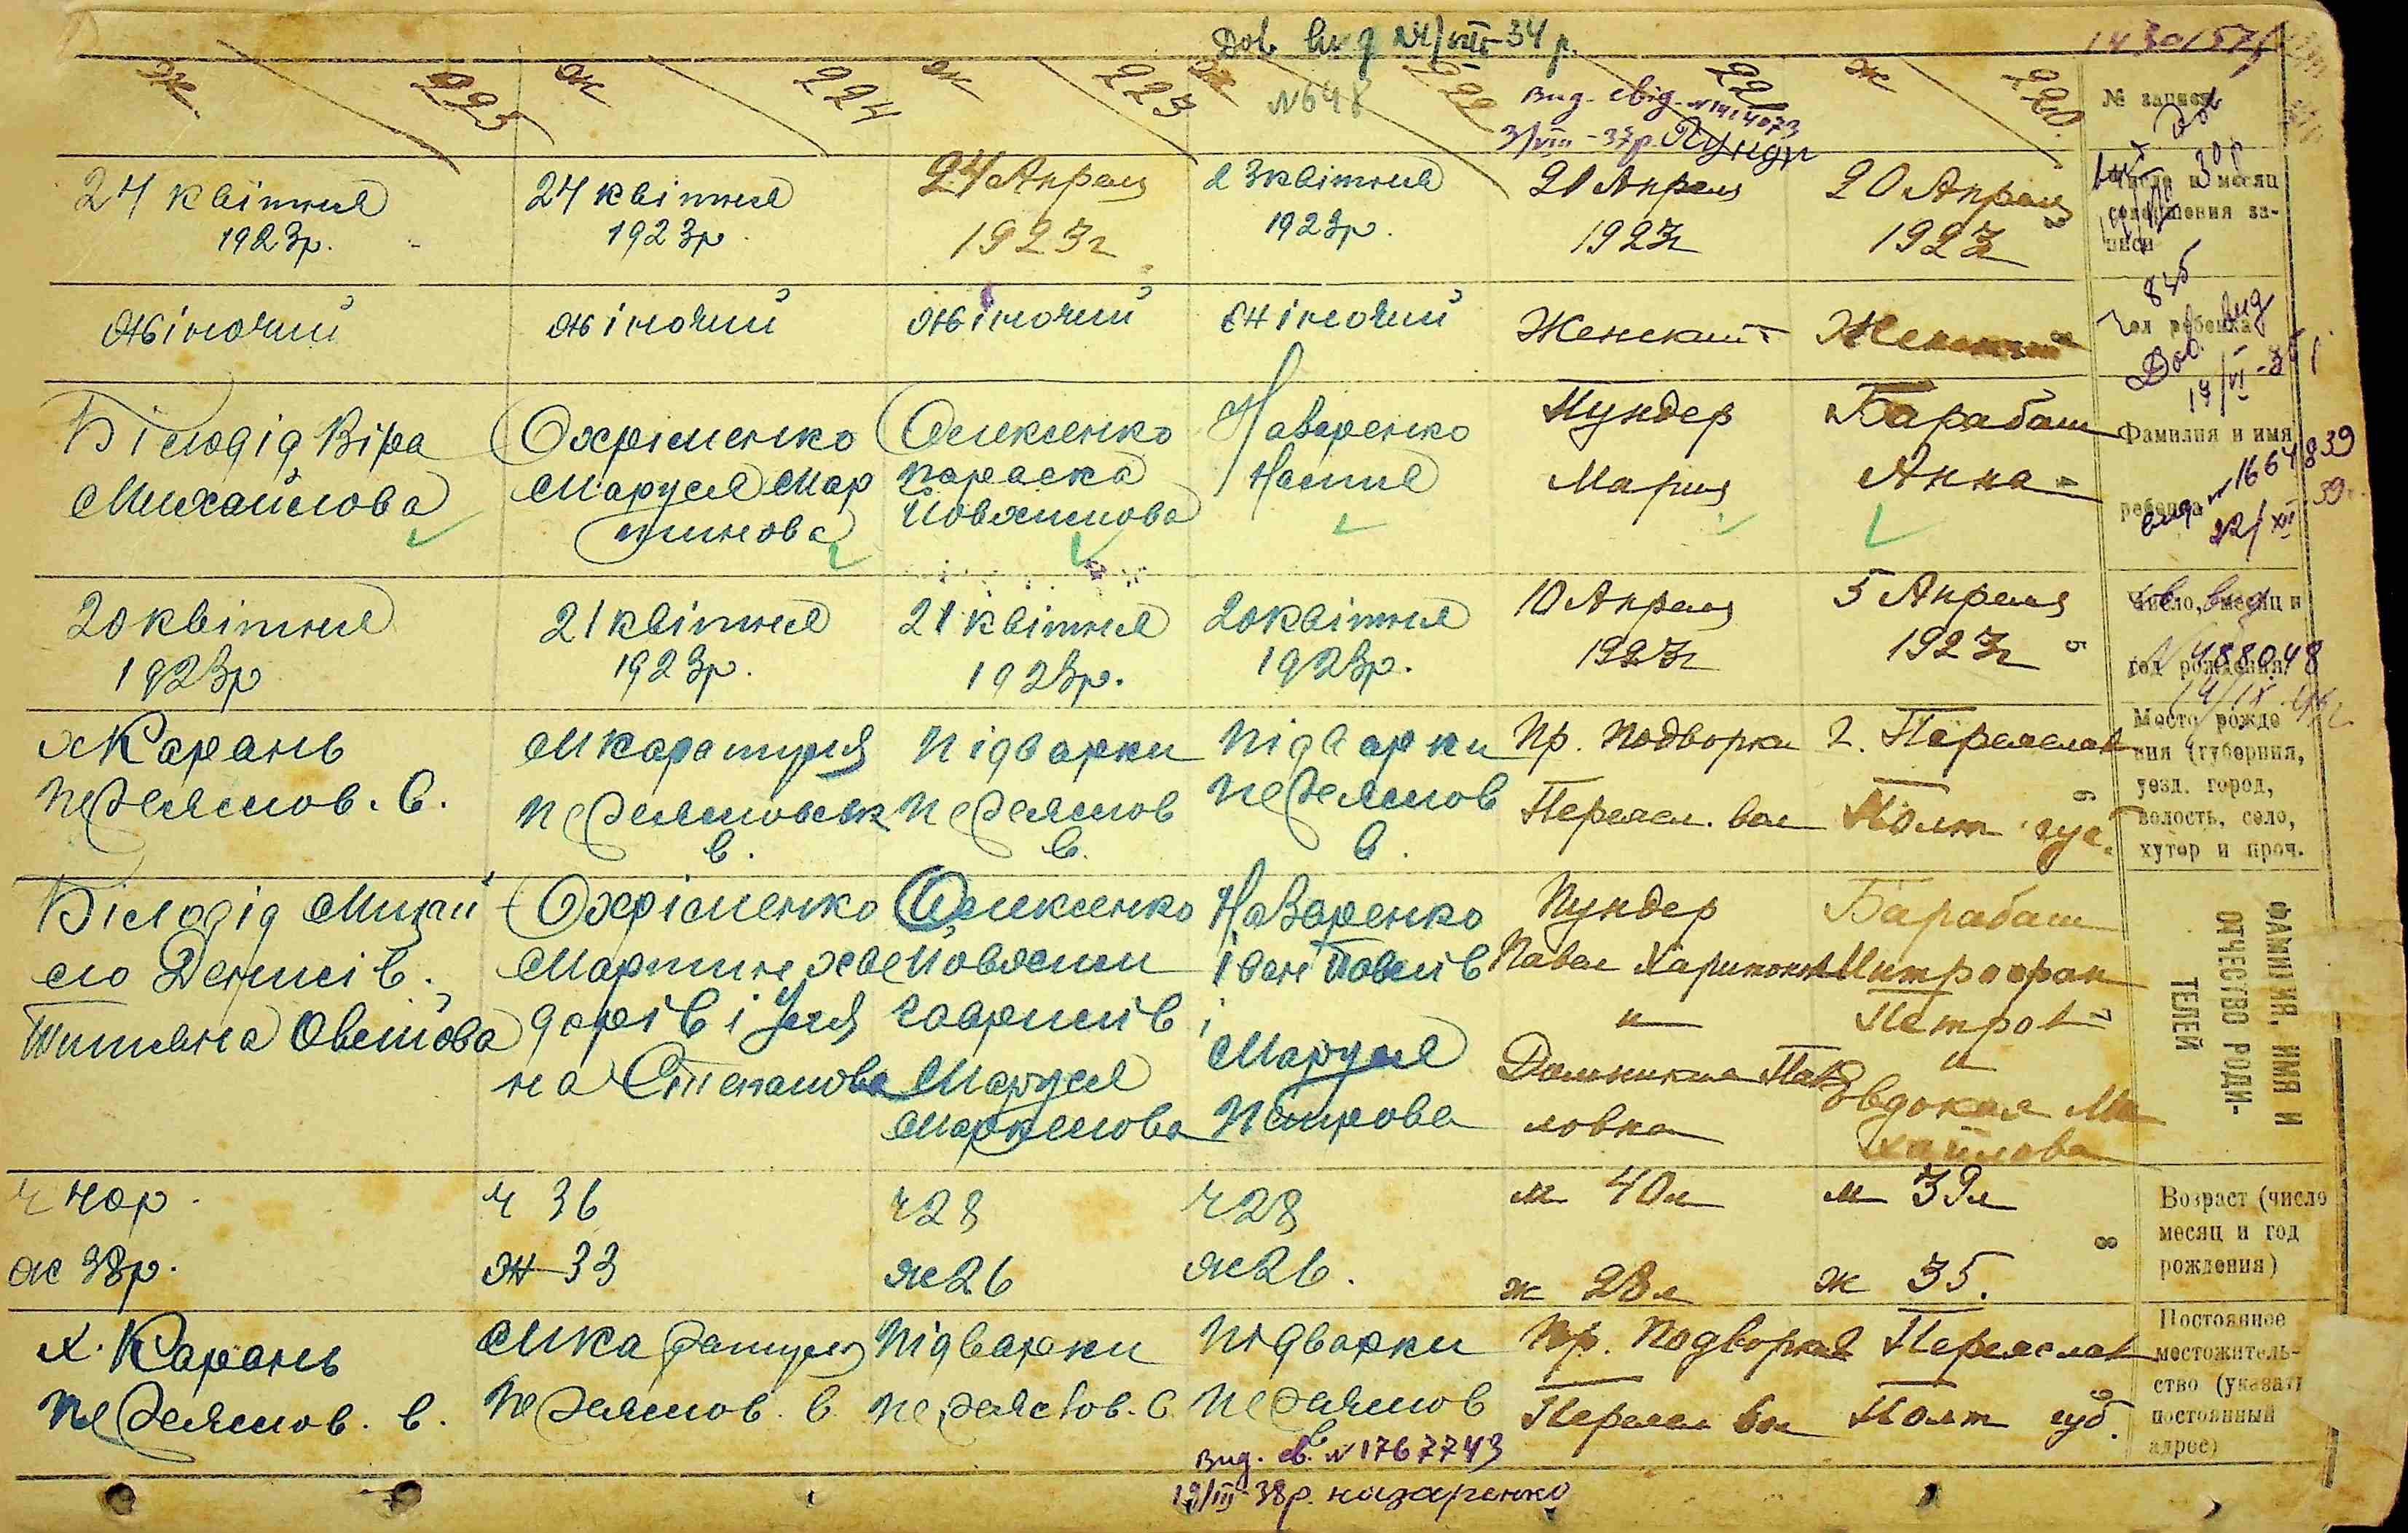 Дов. вид 24/VIII-34 р.
ж. 225
ж 224
ж 223
№648
222
Вид. свід. №1414073
3/VIII-37р. Пундр
221
ж 220.
№ записи
24 квітня
1923р.
24 квітня
1923р.
24 Апреля
1923г
23 квітня
1923р.
21 Апреля
1923г
20 Апреля
1923г
Число и месяц
совершения за-
писи
жіночий
жіночий
жіночий
жіночий
Женский
Женский
Пол ребенка
845
Дов. вид
19/VI-35
Білодід Віра
Михайлова
Охріменко
Маруся Мар
тинова
Олексенко
Параска
Йовхимова
Назаренко
Настя
Пундер
Мария
Барабаш
Анна
Фамилия и имя
ребенка
вид. № 1664839
22/XII 39
20 квітня
1923р
21 квітня
1923р.
21 квітня
1923р.
20 квітня
1923р.
10 Апреля
1923г
5 Апреля
1923г
5
Число, месяц и
год рождения
№ 488048
х Карань
Переяслов. в.
М Каратуля
Переясловськ
в.
Підварки
Переяслов
в.
Підварки
Переяслов
в.
Пр. Подворки
Переясл. вол
г. Переяслав
Полт губ.
6
Место рожде
ния (губерния,
уезд. город,
волость, село,
хутор и проч.
Білодід Михай
ло Денисів.
Титяна Овсійова
Охріменко
Мартин Хве
дорів і Уля
на Степанова
Олексенко
Йовхим
Гаврилів
Маруся
Маркелова
Назаренко
Іван Павлів
і
Маруся
Петрова
Пундер
Павел Харитонов
и
Домникия Пав
ловна
Барабаш
Митрофан
Петров
и
Евдокия Ми
хайлова
7
ФАМИЛИЯ, ИМЯ И
ОТЧЕСТВО РОДИ-
ТЕЛЕЙ
ч 40р.
ж 38р.
ч 36
ж 33
ч 28
ж 26
ч 28
ж 26.
м 40л
ж 28л
м 39л
ж 35.
8
Возраст (число
месяц и год
рождения)
х. Карань
Переяслов. в.
М Каратуля
Переяслов. в
Підварки
Переяслов. в
Підварки
Переяслов
в
Пр. Подворки
Переясл вол
г Переяслав
Полт губ.
9
Постоянное
местожитель-
ство (указать
постоянный
адрес)
Вид. св. №1767743
19/III-38р. назаренко